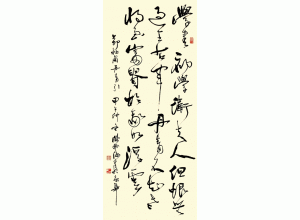 學書初學衛夫人但恨無
過王右軍丹青不知老
將至富貴於我如浮雲
丹青引 甲子